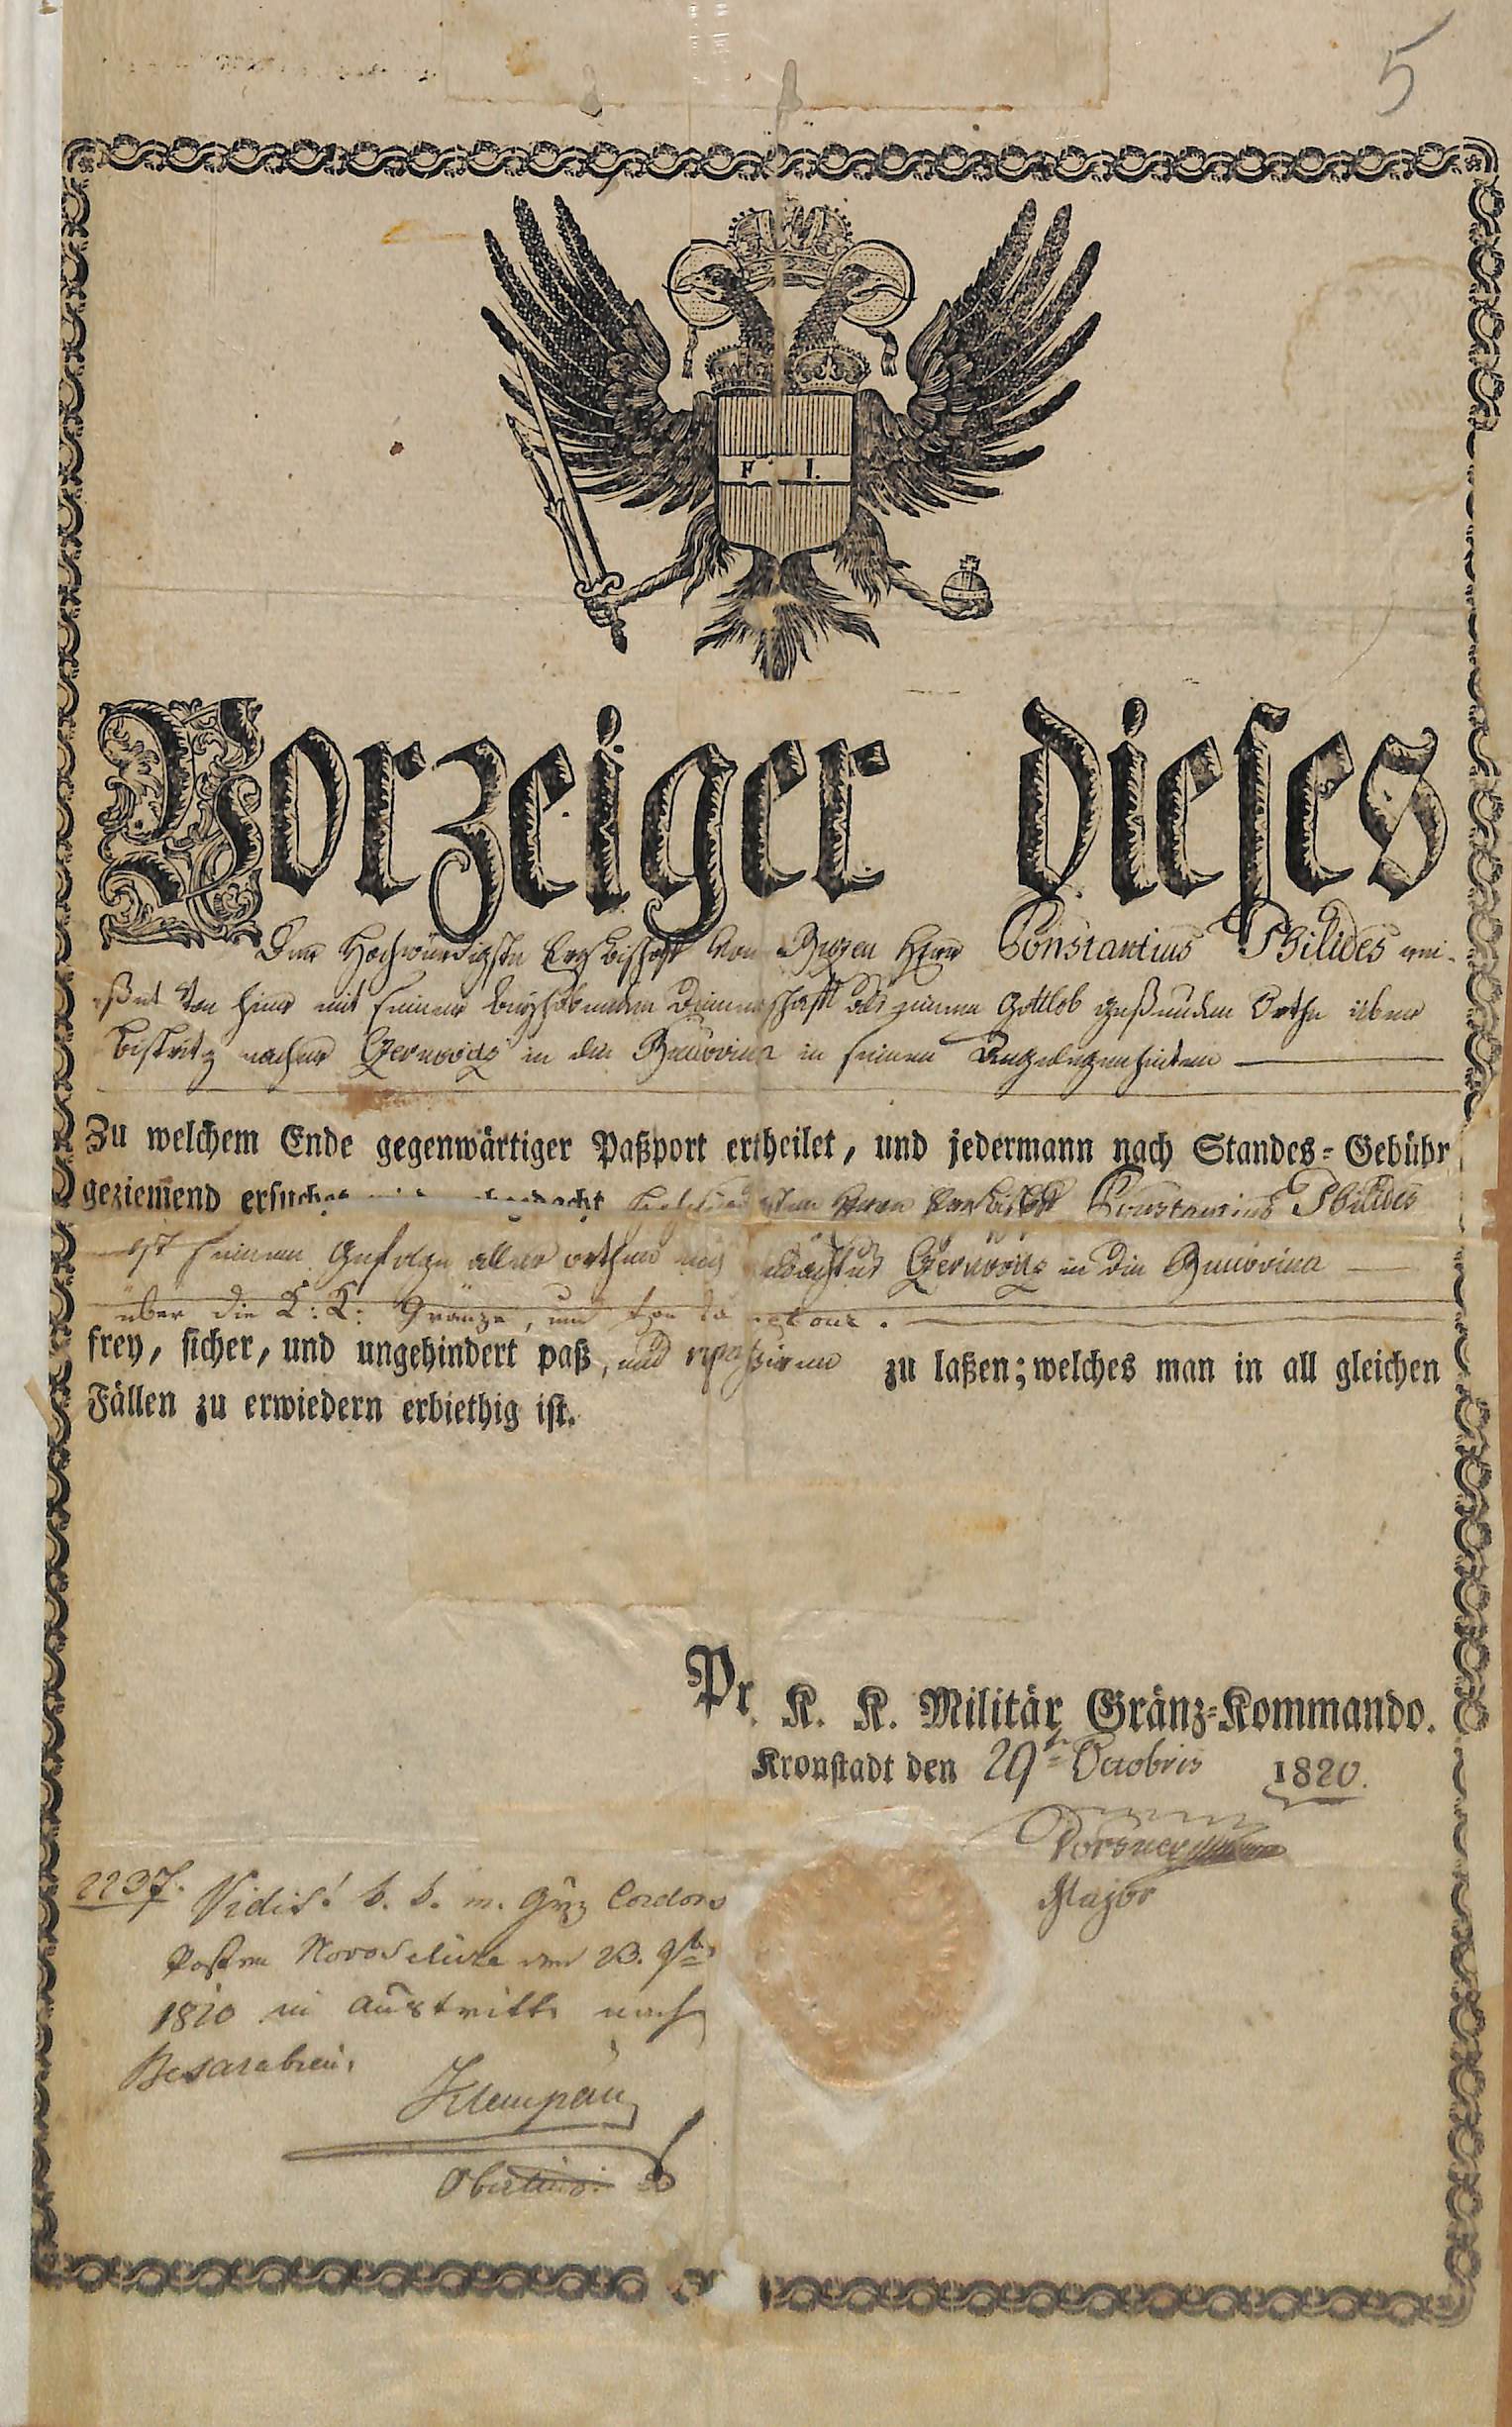 5
F. I.
Vorzeiger dieses
Der Hochwürdigste Erzbischof von Buzeu Herr Constantius Philides rei-
ßet von hier mit seiner beyhabenden Dienerschaft aus einem Gottlob gesunden Orthe über
Bistritz nacher Czernovitz in die Buccovina in seinen Angelegenheiten
Zu welchem Ende gegenwärtiger Paßport ertheilet, und jedermann nach Standes-Gebühr
geziemend ersuchet Herrn Erzbischof Constantius Philides
seinem Gefolge aller orthen nach Czernovitz in die Buccovina
über die K: K: Gränze, und von da retour.
frey, sicher, und ungehindert paß, und repaßiren zu laßen; welches man in all gleichen
Fällen zu erwiedern erbiethig ist.
Pr. K. K. Militär Gränz-Kommando.
Kronstadt den 29ten Octobris 1820.
Major
2237. Vidit! k. k. m. Grz Cordons
Posten Novoselitza den 23. 9br
1820 im Austritte nach
Besarabien.